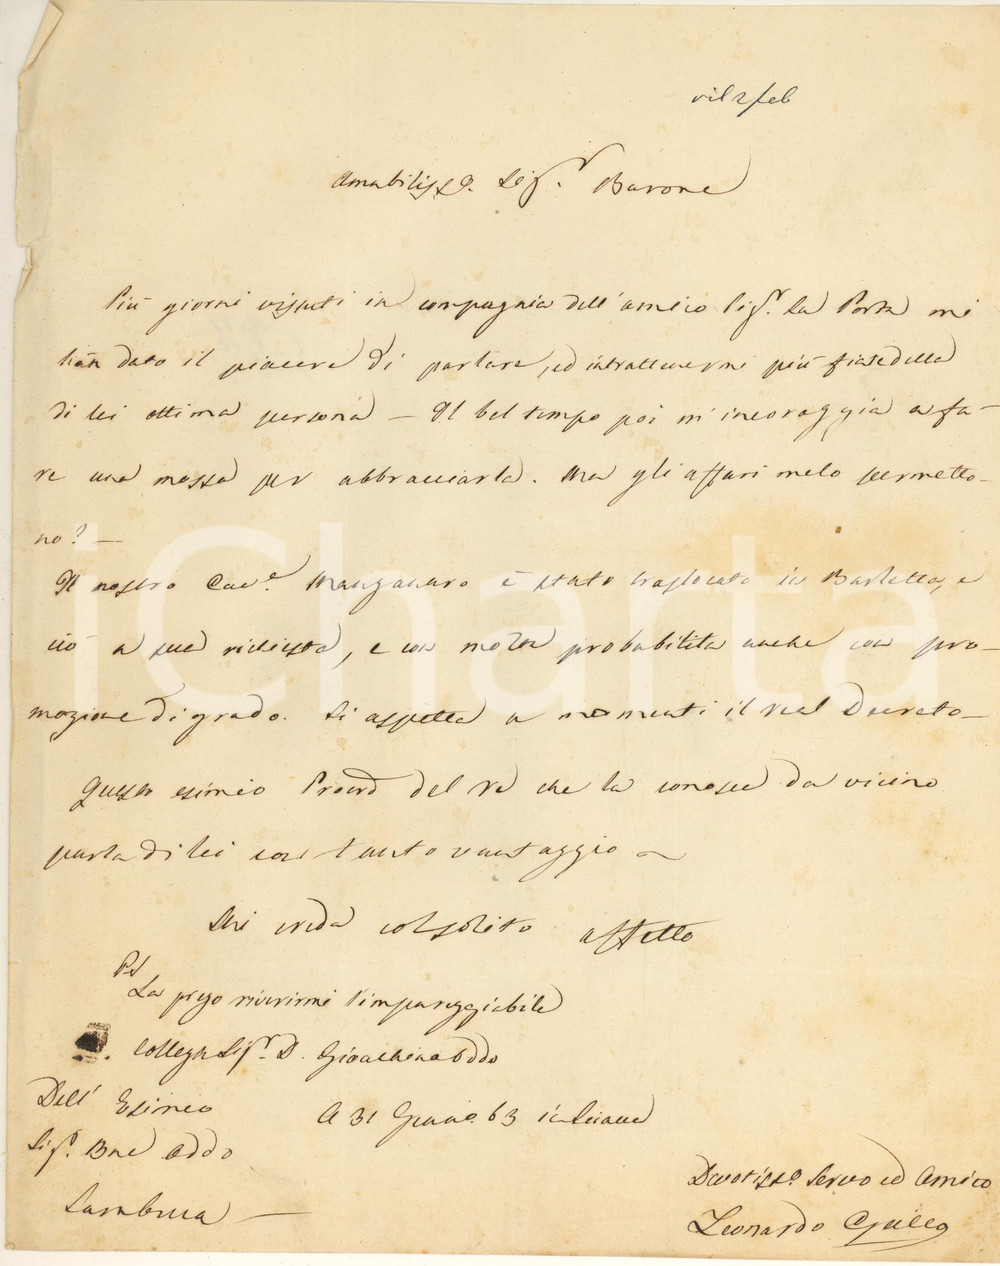 ril 2 feb
Amabiliss.o Sig.r Barone
Più giorni vissuti in compagnia dell'amico Sig.r La Porta mi
han dato il piacere di parlare, ed intrattenermi più fiate della
di lei ottima persona — Il bel tempo poi m'incoraggia a fa-
re una mossa per abbracciarla. Ma gli affari melo permetto-
no? —
Il nostro Cav.e Manganaro è stato traslocato in Barletta, e
ciò a sua richiesta, e con molta probabilità anche con pro-
mozione di grado. Si aspetta a momenti il real Decreto —
Questo esimio Procr.e del Re che la conosce da vicino
parla di lei con tanto vantaggio —
Mi creda col solito affetto
PS
La prego riverirmi l'impareggiabile
collega Sig.r D. Gioachino Oddo
Dell' Esimio
A 31 Genn.o 63 in Sciacca
Sig.r B.ne Oddo
Sambuca —
Devotiss.o Servo ed Amico
Leonardo Gallo
iCharta